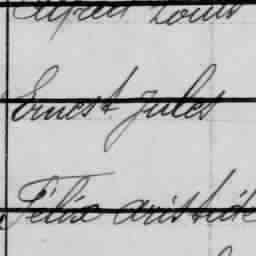 Alfred Louis
Ernest Jules
Félix aristide